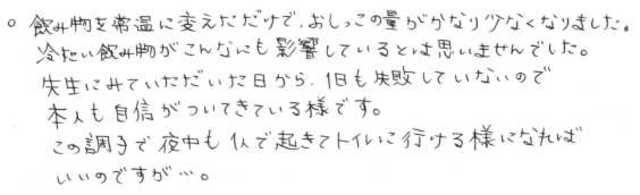 ○ 飲み物を常温に変えただけで、おしっこの量がかなり少なくなりました。
冷たい飲み物がこんなにも影響しているとは思いませんでした。
先生にみていただいた日から、1日も失敗していないので
本人も自信がついてきている様です。
この調子で夜中も1人で起きてトイレに行ける様になれば
いいのですが…。